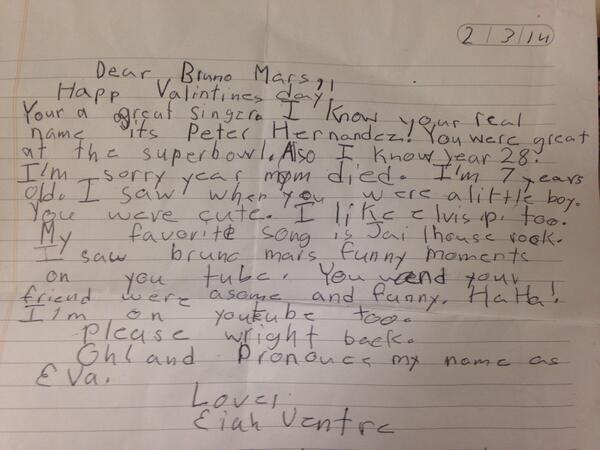 2/3/14
Dear Bruno Mars,,
Happ Valintines day!
Your a great singer. I know your real
name its Peter Hernandez! You were great
at the superbowl. Also I know year 28.
I'm sorry year mom died. I'm 7 years
old. I saw when you were a little boy.
You were cute. I like elvis p. too.
My favorite song is Jailhouse rock.
I saw bruno mars funny moments
on you tube. You and your
friend were asome and funny. HaHa!
I'm on youtube too.
Please wright back.
Oh! and Pronouce my name as
Eva.
Love,